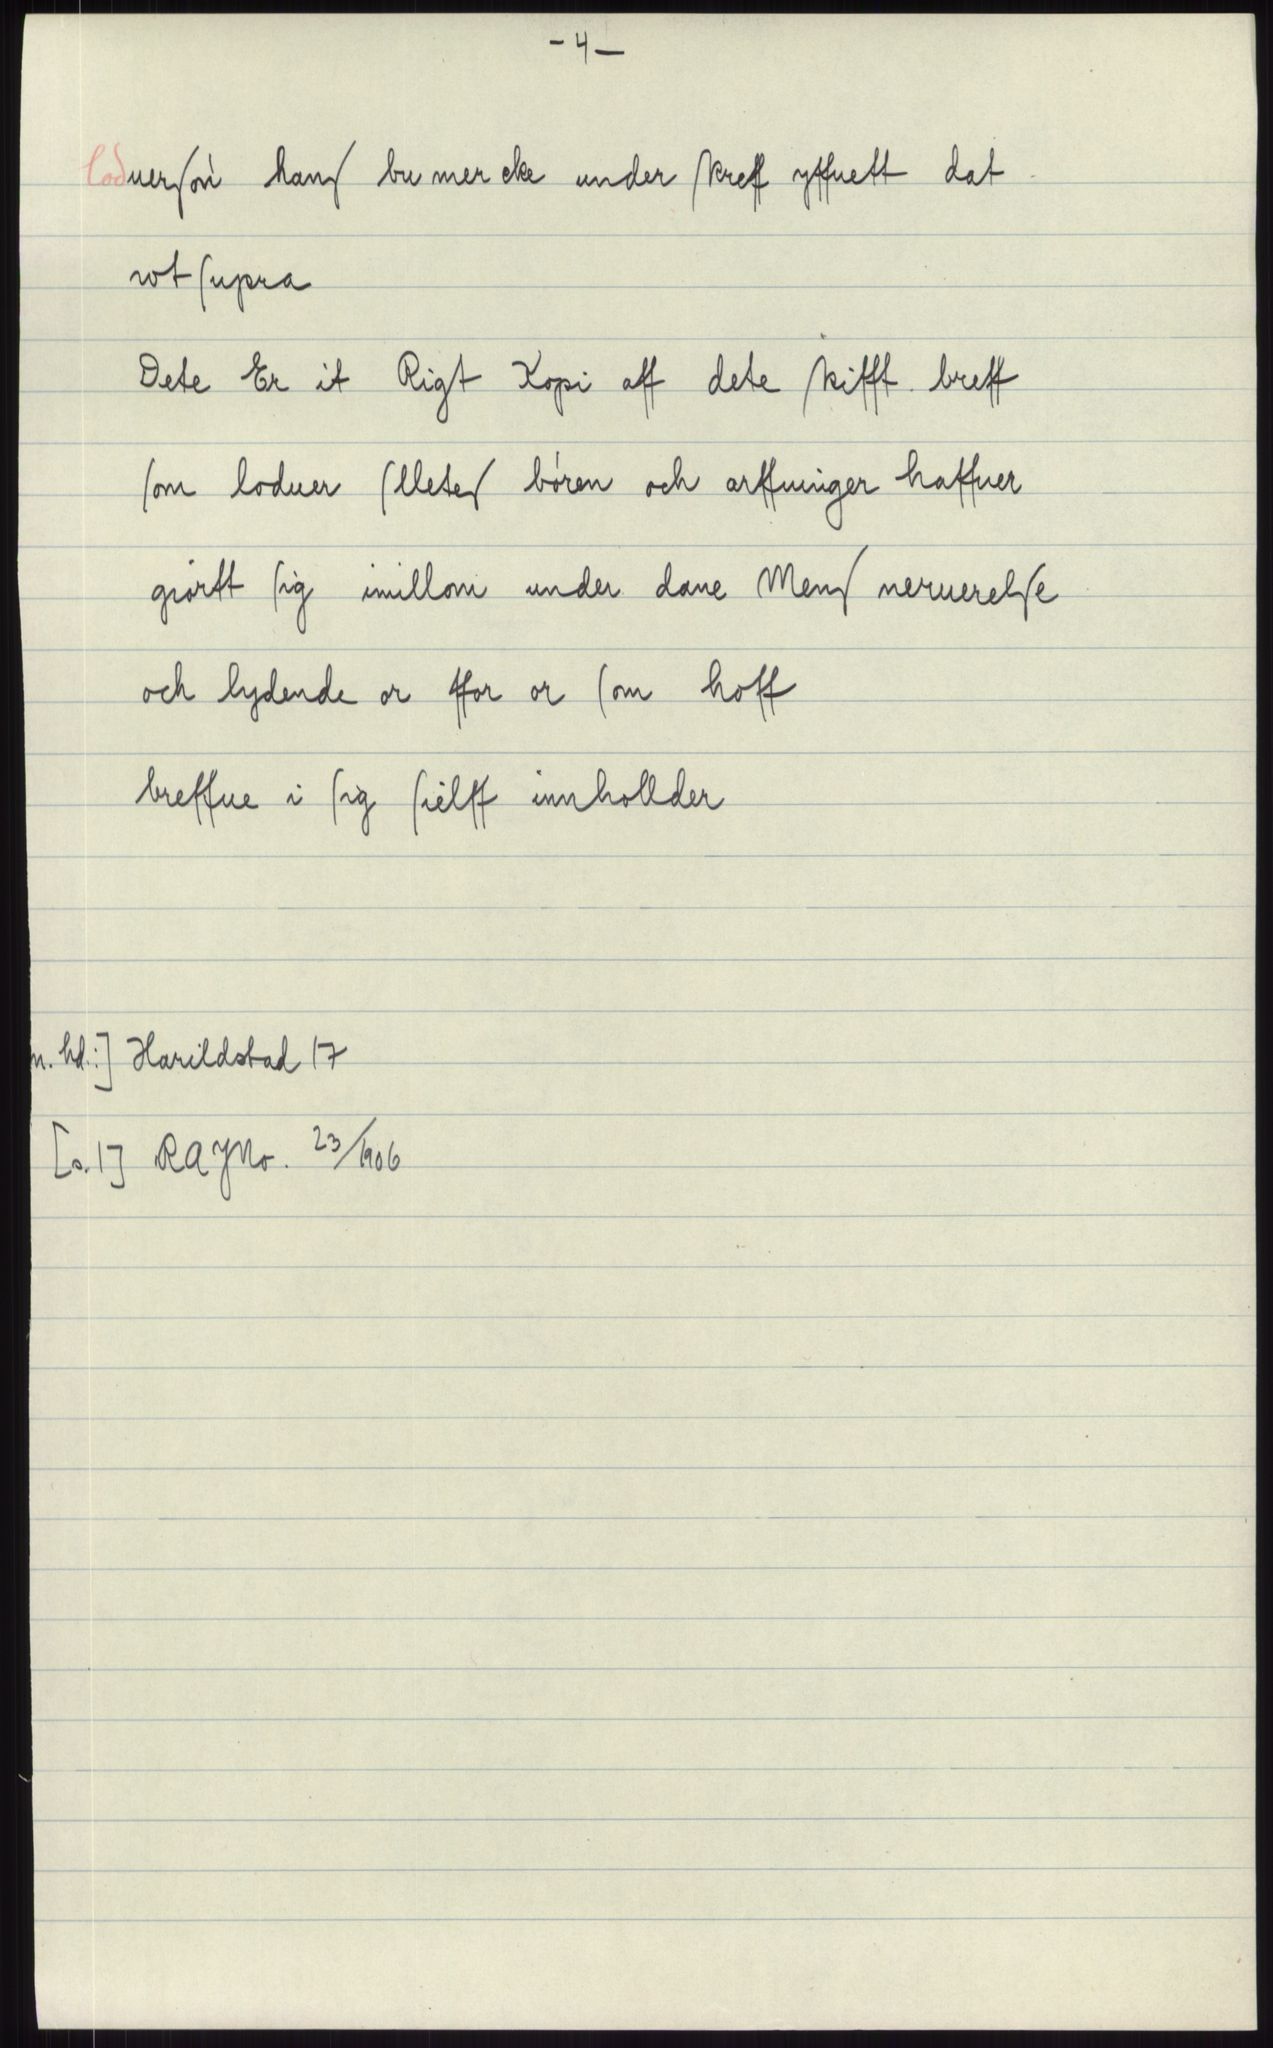 - 4 -
loduerſøn hanſ bu mer cke under ſkreff yffuett dat
vvt ſupra
Dete Er it Rigt Kopi aff dete ſkifft breff
ſom loduer ſlleteſ børen och arffuinger haffuer
giørtt ſig imillom under dane Menſ neruerelſe
och lydende or ffor or ſom hoff
breffue i ſig ſielff innhollder
n. hd.:] Harildstad 17
[s. 1] RA JNo. 23/1906